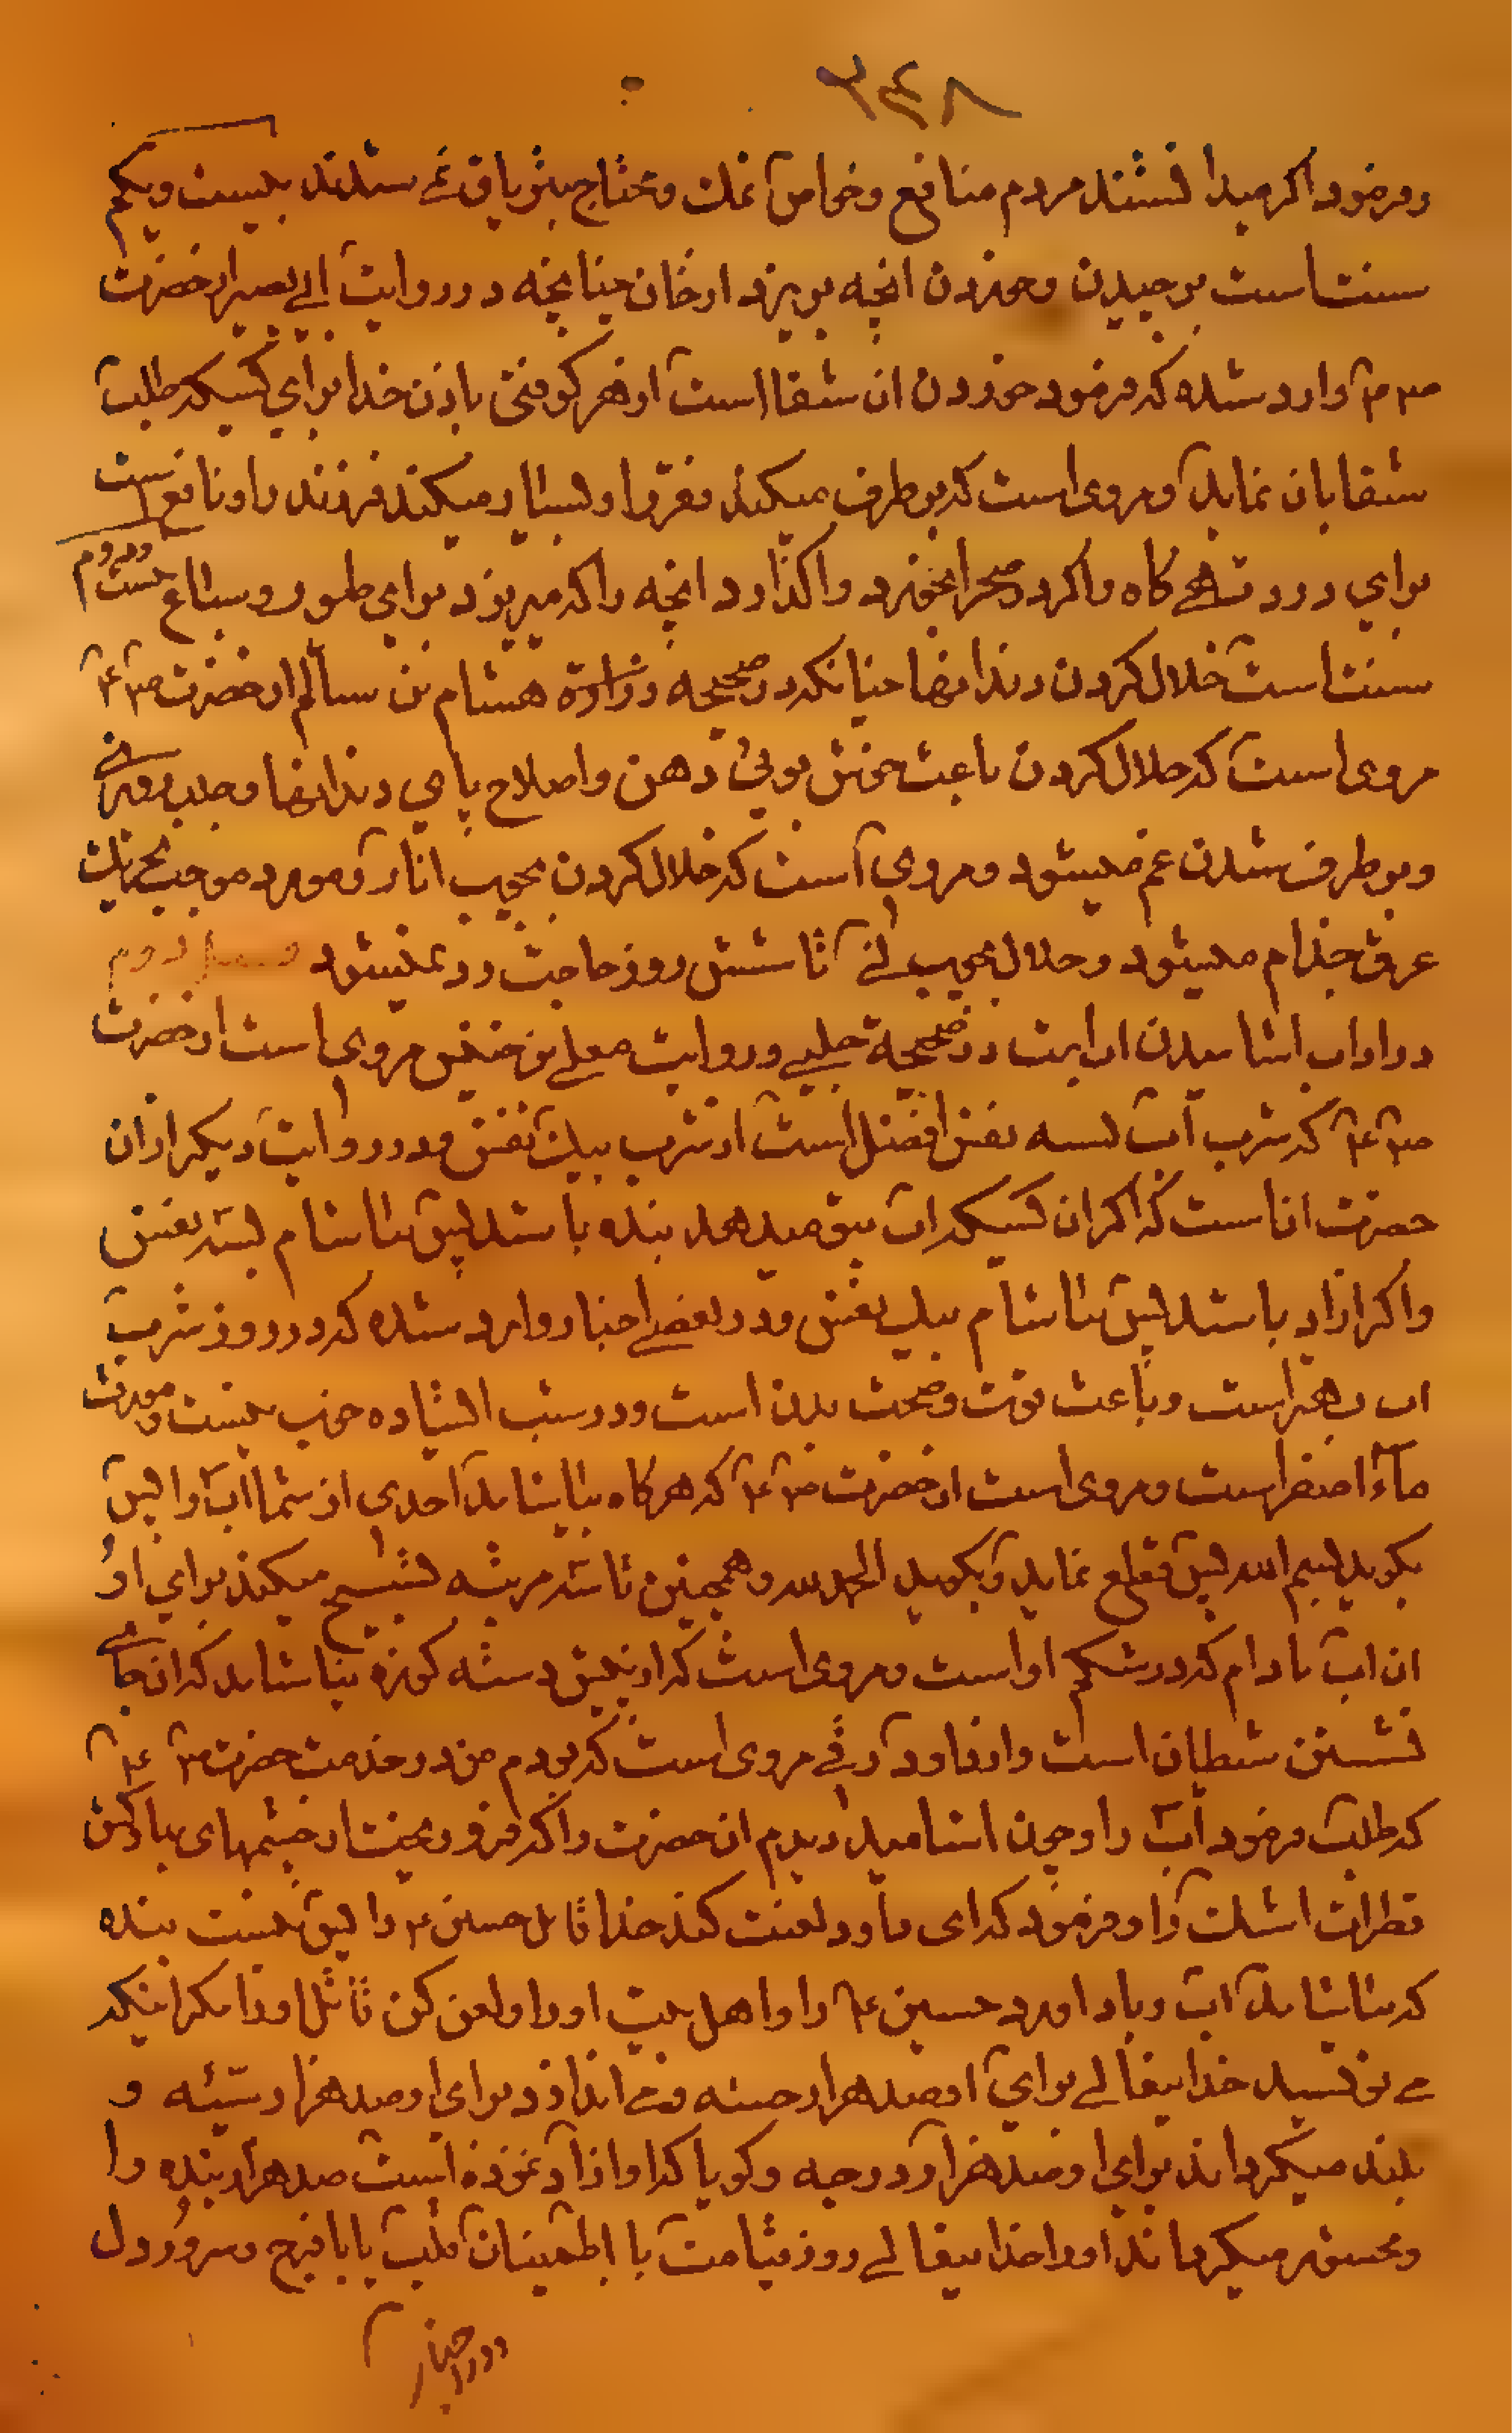 ۳۴۸
و فرمود اکر میدانستند مردم منافع و خواص نمک و محتاج بتریاقی نمے شدند بیست و یکم
سنت است برچیدن و خوردن انچه بریزد از خان چنانچه در روایت ابی بصیر از حضرت
ص۳ ع۴ وارد شده که فرمود خوردن ان شفا است از هر کوفتی باذن خدا برای کسیکه طلب
شفا بان نماید و مروی است که برطرف میکند فقر را و بسیار میکند فرزند را و نافع است
برای درد تهی کاه و اکر در صحرا بخورد واکذارد انچه را که میریزد برای طیور و سباع بیست و دوم
سنت است خلال کردن دندانها چنانکه در صحیحه هشام بن سالم از حضرت ص۳ ع۴
مروی است که خلال کردن باعث خوش بویی دهن و اصلاح پای دندانها و جلب روزی
و برطرف شدن غم میشود و مروی است که خلال کردن بچوب انار و مورد موجب تحریک
عرق جذام میشود و خلال بچوب نی تا شش روز حاجت رد نمیشود فصل دوم
در اداب اشامیدن اب است در صحیحه حلبی و روایت معلی بن خنیس مروی است از حضرت
ص۳ ع۴ که شرب اب بسه نفس افضل است از شرب بیک نفس و در روایت دیکر از ان
حضرت انست که اکر ان کسیکه اب بتو میدهد بنده باشد پس بیاشام بسه نفس
و اکر ازاد باشد پس بیاشام بیک نفس و در بعضی اخبار وارد شده که در روز شرب
اب بهتر است و باعث قوت و صحت بدن است و در شب ایستاده خوب نیست و مورث
ماء اصفر است و مروی است از حضرت ص۳ ع۴ که هرکاه بیاشاید احدی از شما اب را پس
بکوید بسم الله پس قطع نماید و بکوید الحمد لله و همچنین تا سه مرتبه تسبیح میکند برای او
ان اب مادام که در شکم او است و مروی است که از پیش دسته کوزه نیاشاید که ان جای
نشستن شیطان است و از داود رقی مروی است که بودم من در خدمت حضرت ص۳ ع۴
که طلب فرمود اب را و چون اشامید دیدم ان حضرت را که فرو ریخت از چشمهای مبارکش
قطرات اشک را و فرمود که ای داود لعنت کند خدا قاتل حسین ع۴ را پس نیست بنده
که بیاشاید اب و یاد اورد حسین ع۴ را و اهل بیت او را و لعن کن قاتل او را مکر اینکه
می نویسد خدایتعالی برای او صد هزار حسنه و می اندازد برای او صد هزار سیئه و
بلند میکرداند برای او صد هزار درجه و کویا که او ازاد نموده است صد هزار بنده را
و محشور میکرداند او را خدایتعالی روز قیامت با اطمینان قلب یا با فرح و سرور دل
و در اخبار